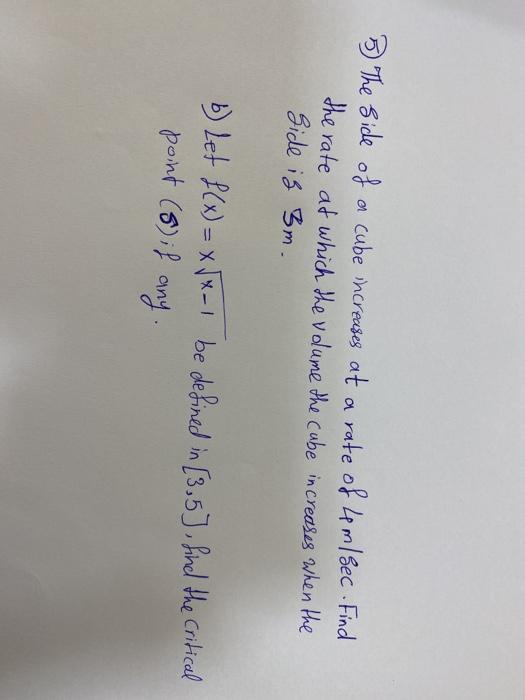 5) The side of a cube increases at a rate of 4m/sec. Find
the rate at which the volume the cube increases when the
side is 3m.
b) Let f(x) = x√x-1 be defined in [3,5], find the critical
point (s) if any.